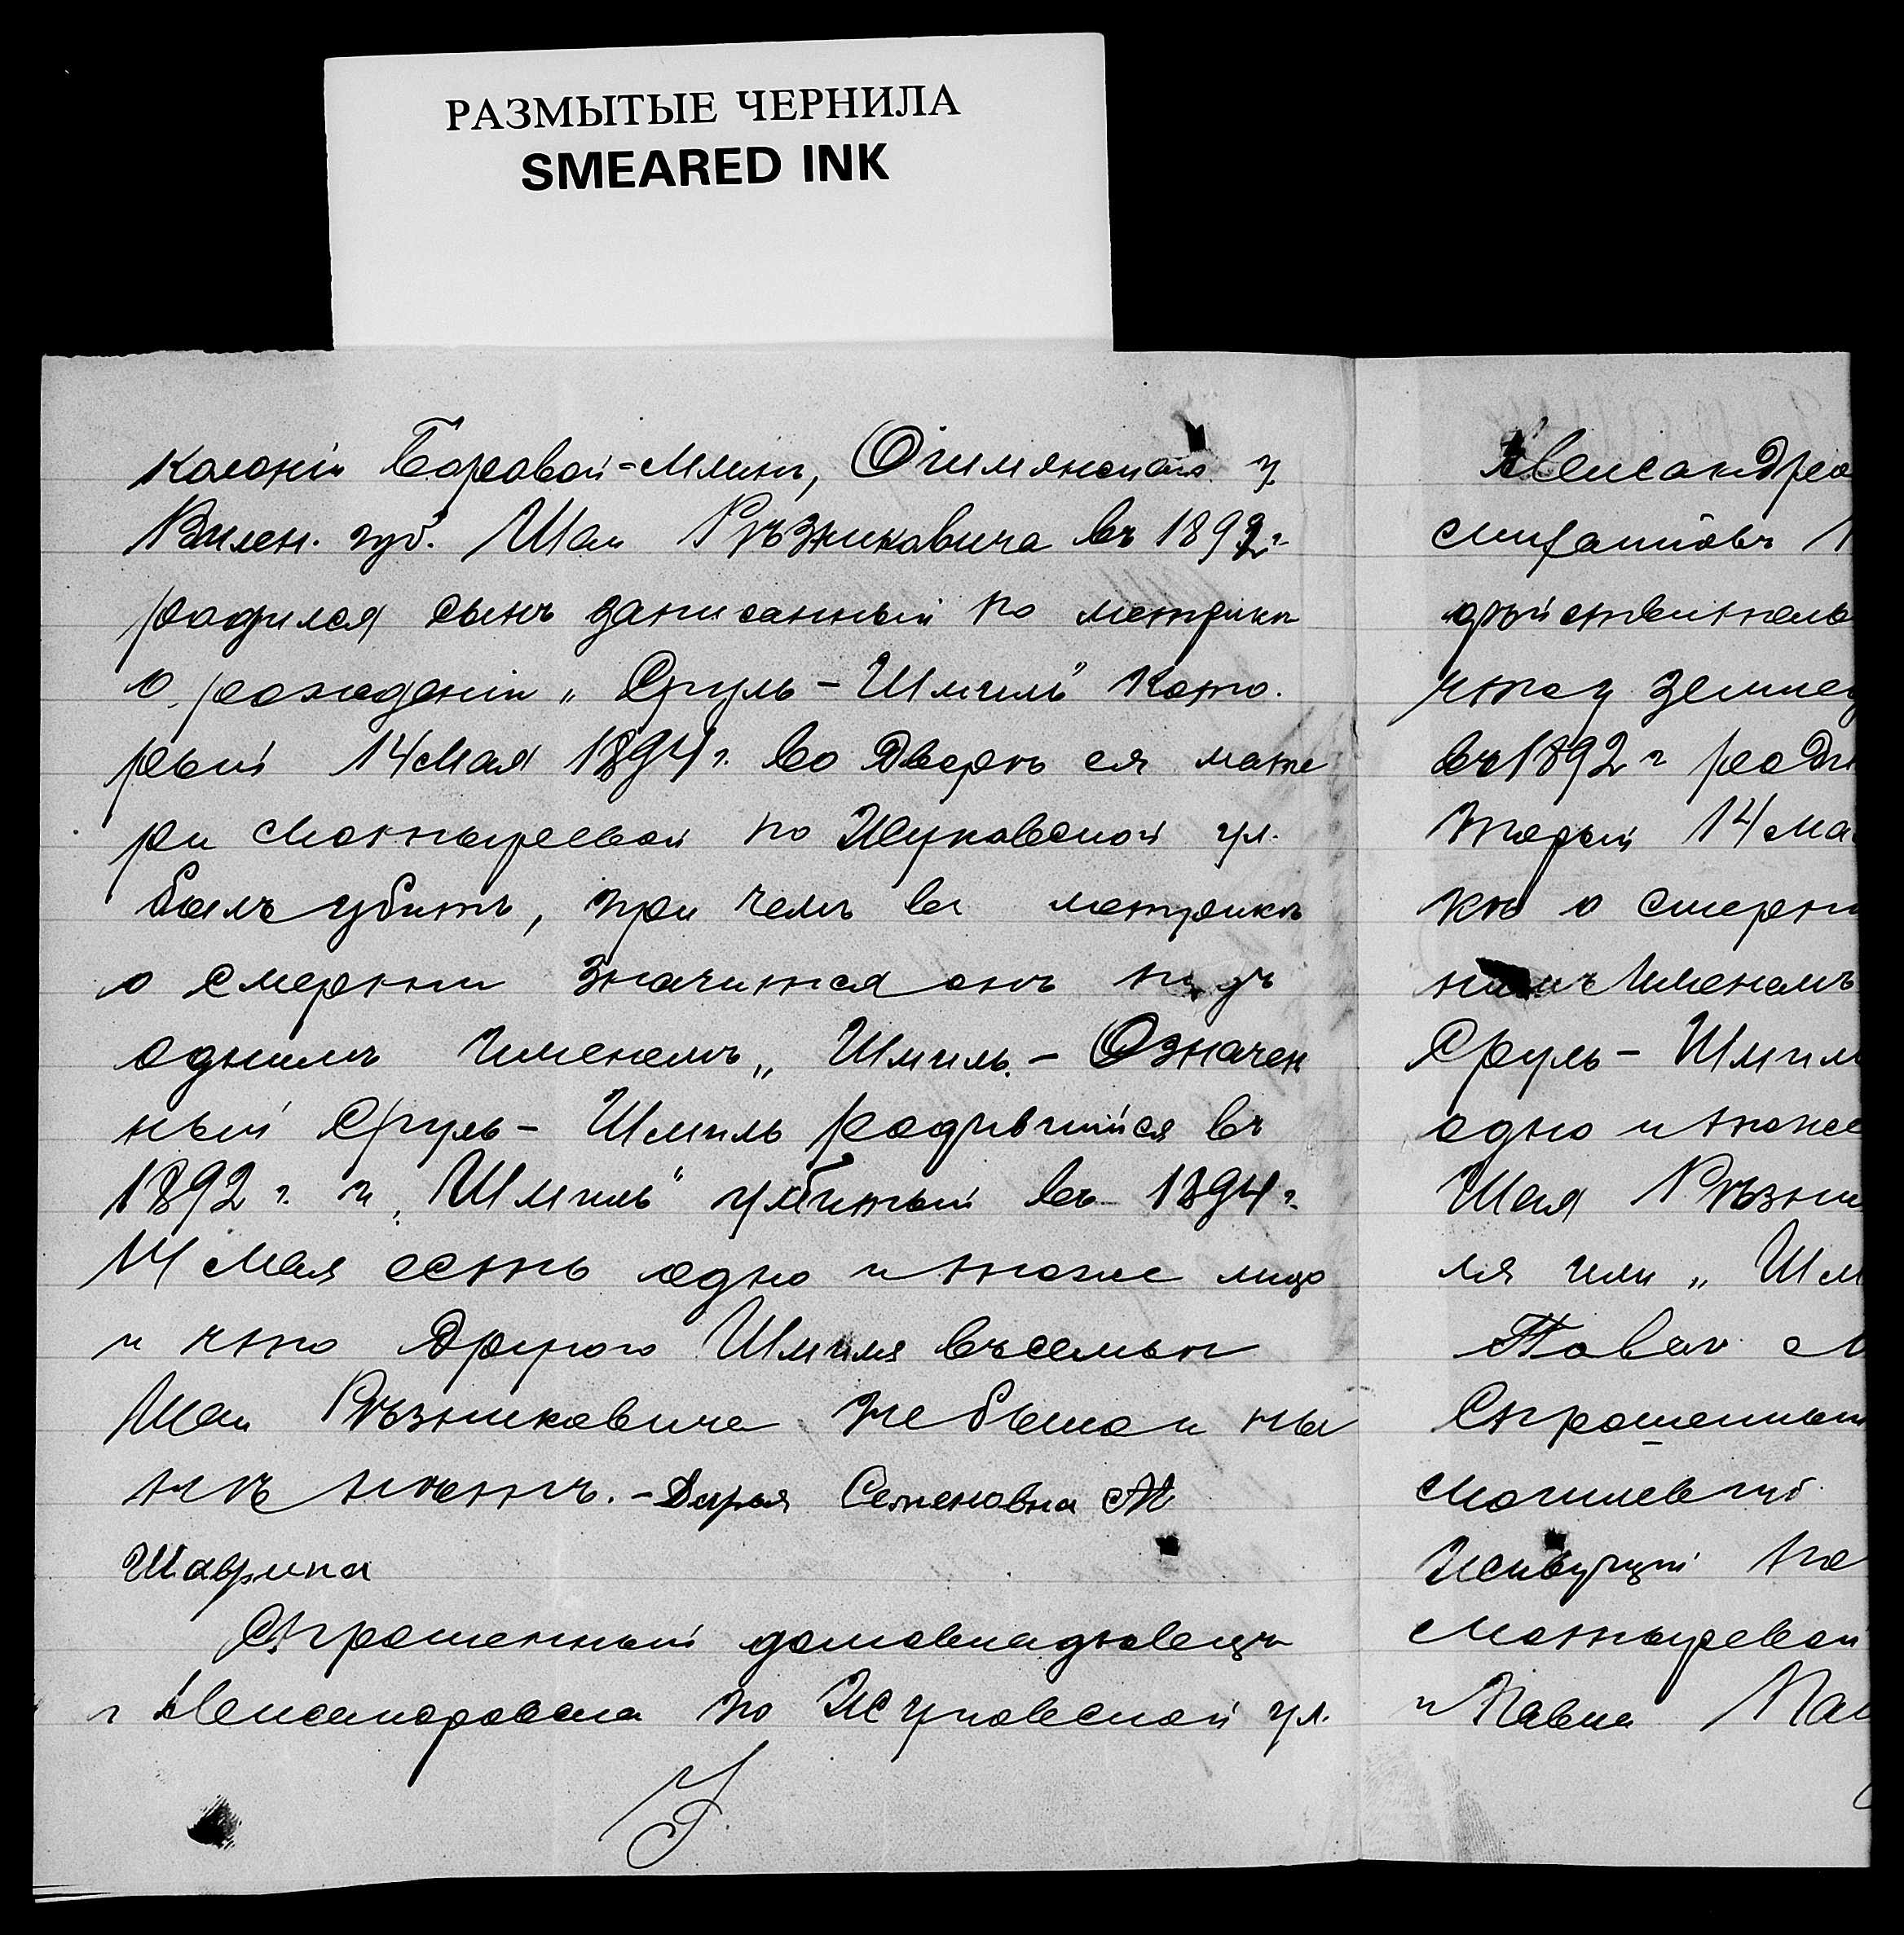 РАЗМЫТЫЕ ЧЕРНИЛА
SMEARED INK
колонiи Боровой-Млинъ, Ошмянскаго у
Вилен. губ. Шаи Рѣзниковича въ 1892 г.
родился сынъ записанный по метрикѣ
о рожденiи „Сруль-Шмиль" кото.
рый 14 Мая 1894 г. во дворѣ ея мате
ри Монтыревой по Жуковской ул.
былъ убитъ, при чемъ въ метрикѣ
о смерти значится онъ подъ
однимъ именемъ „Шмиль. - Означен
ный Сруль-Шмиль родившийся въ
1892 г. и „Шмиль" убитый въ 1894 г.
14 Мая есть одно и тоже лицо
и что другого Шмиля въ семьѣ
Шаи Рѣзниковича не было и ны
нѣ нѣтъ. - Дарья Семеновна
Шаврина
Спрошенный домовладѣлецъ
г Александровска по Жуковской ул.
Александро
дѣйствитель
что у землед
въ 1892 г роди
торый 14 ма
кѣ о смерти
нимъ Именемъ
Сруль-Шмил
одно и тоже
Шая Рѣзни
ля или „Шм
Спрошенный
Могилев губ.
Живущiй по
Монтыревой
и Павла